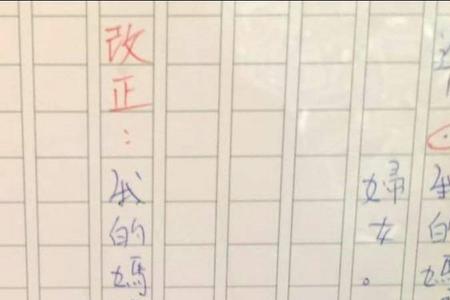 我的媽
婦女。
改正：我的媽